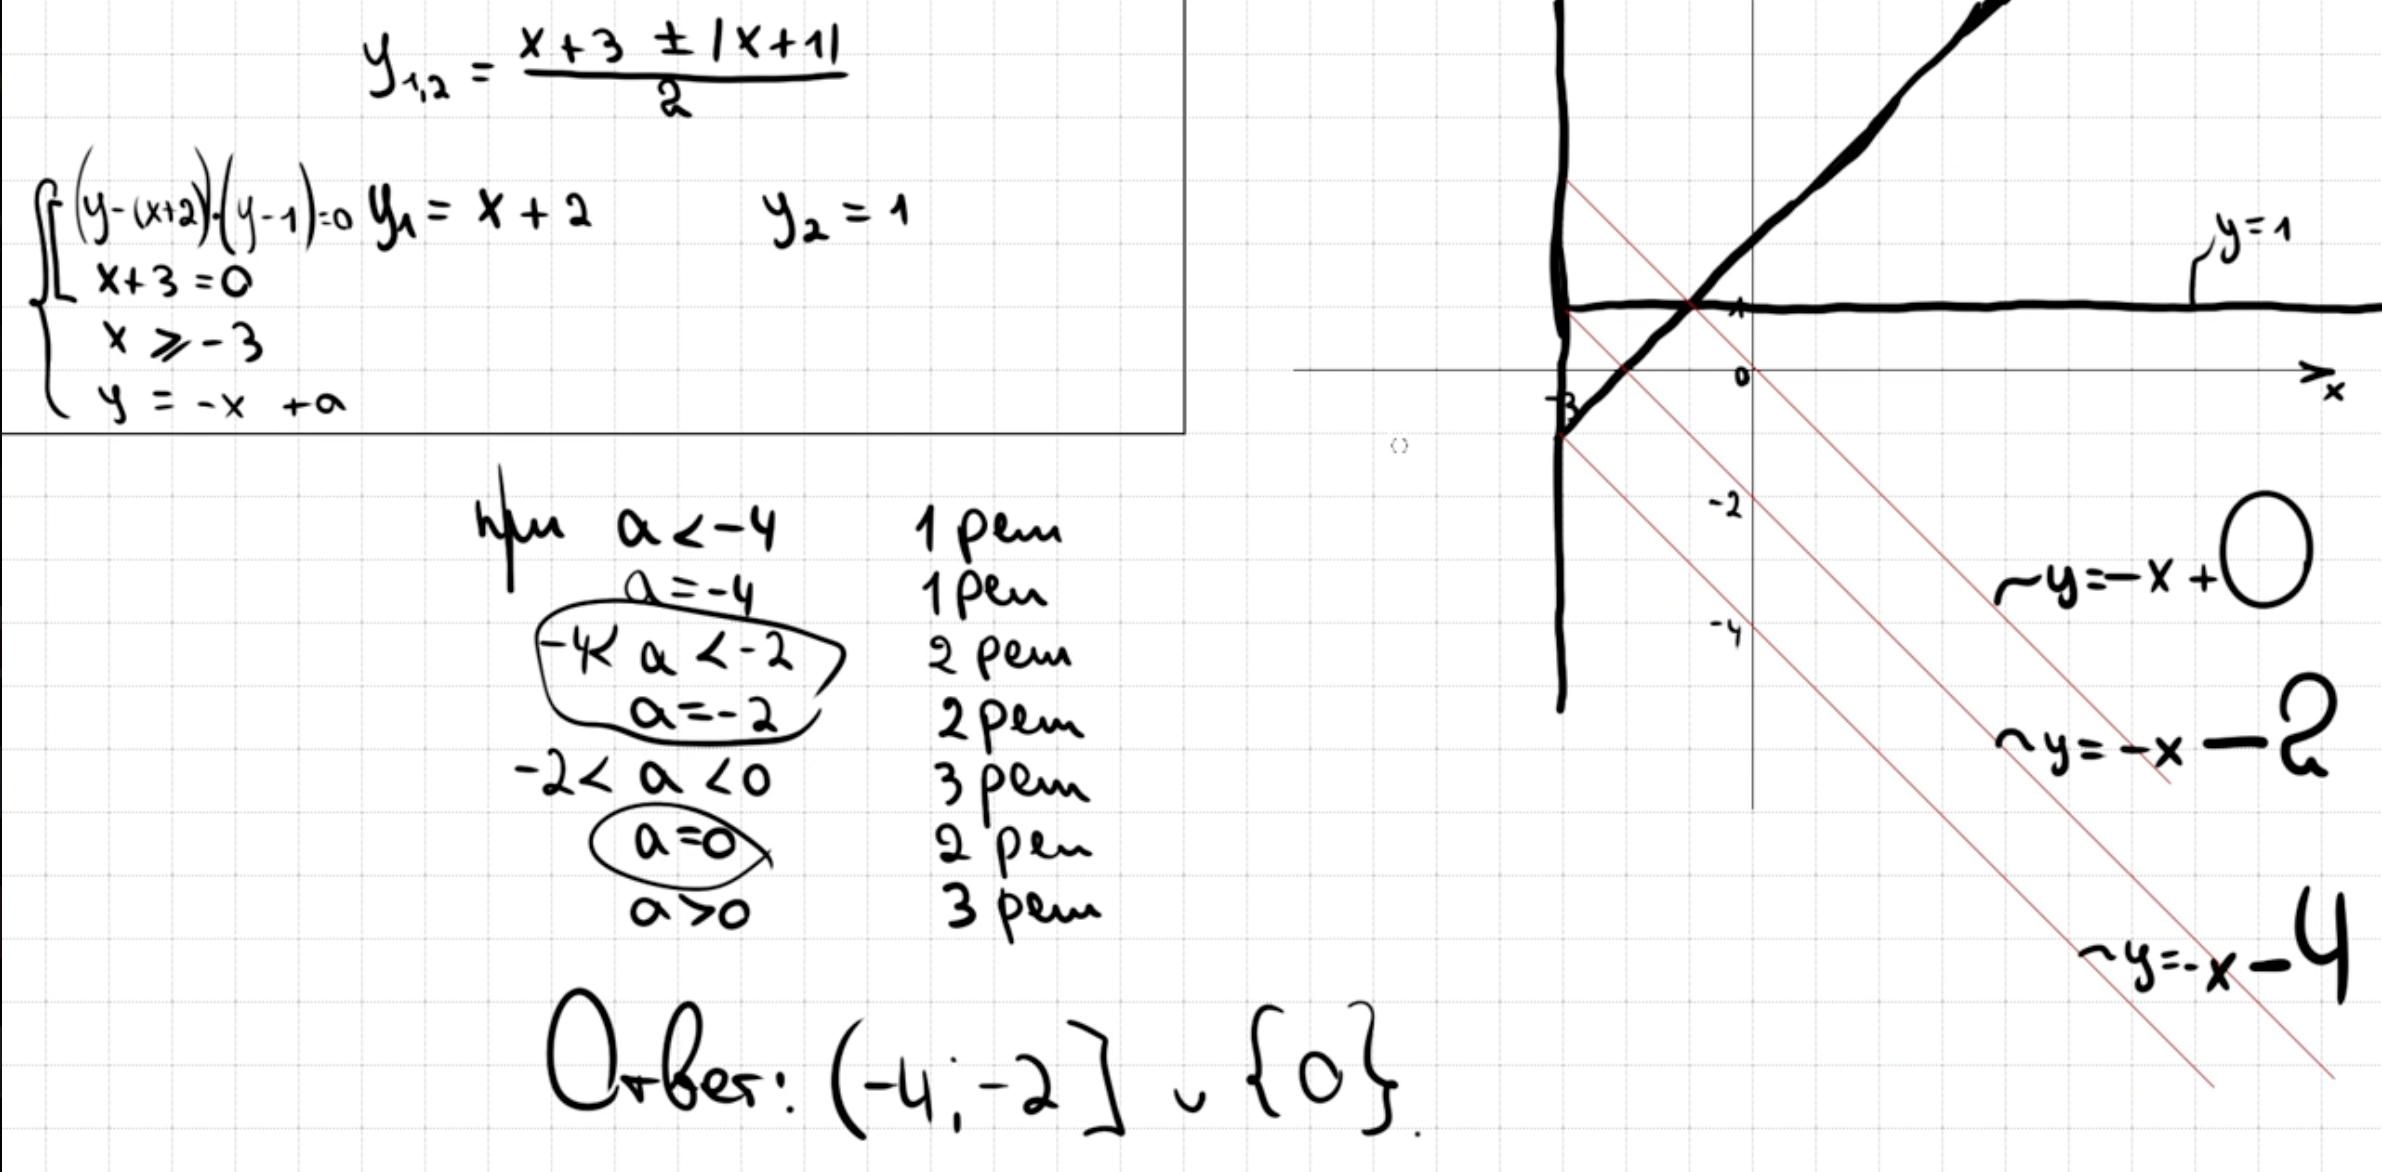 y₁,₂ = (x + 3 ± |x + 1|) / 2
(y - (x+2))·(y - 1) = 0   y₁ = x + 2   y₂ = 1
x + 3 = 0
x ⩾ -3
y = -x + a
при a < -4   1 реш
a = -4   1 реш
-4 < a < -2   2 реш
a = -2   2 реш
-2 < a < 0   3 реш
a = 0   2 реш
a > 0   3 реш
Ответ: (-4; -2] ∪ {0}.
y = 1
1
0
x
-3
-2
-4
~y = -x + 0
~y = -x - 2
~y = -x - 4